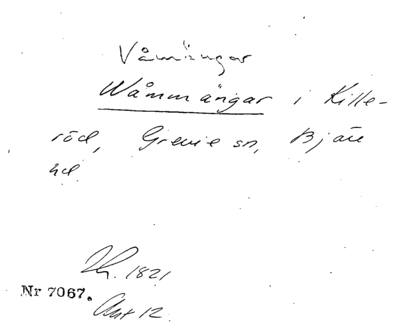 Våmängar
Wåmmängar i Kille-
röd, Grevie sn, Bjäre
hd
Th. 1821
Nr 7067.
Akt 12